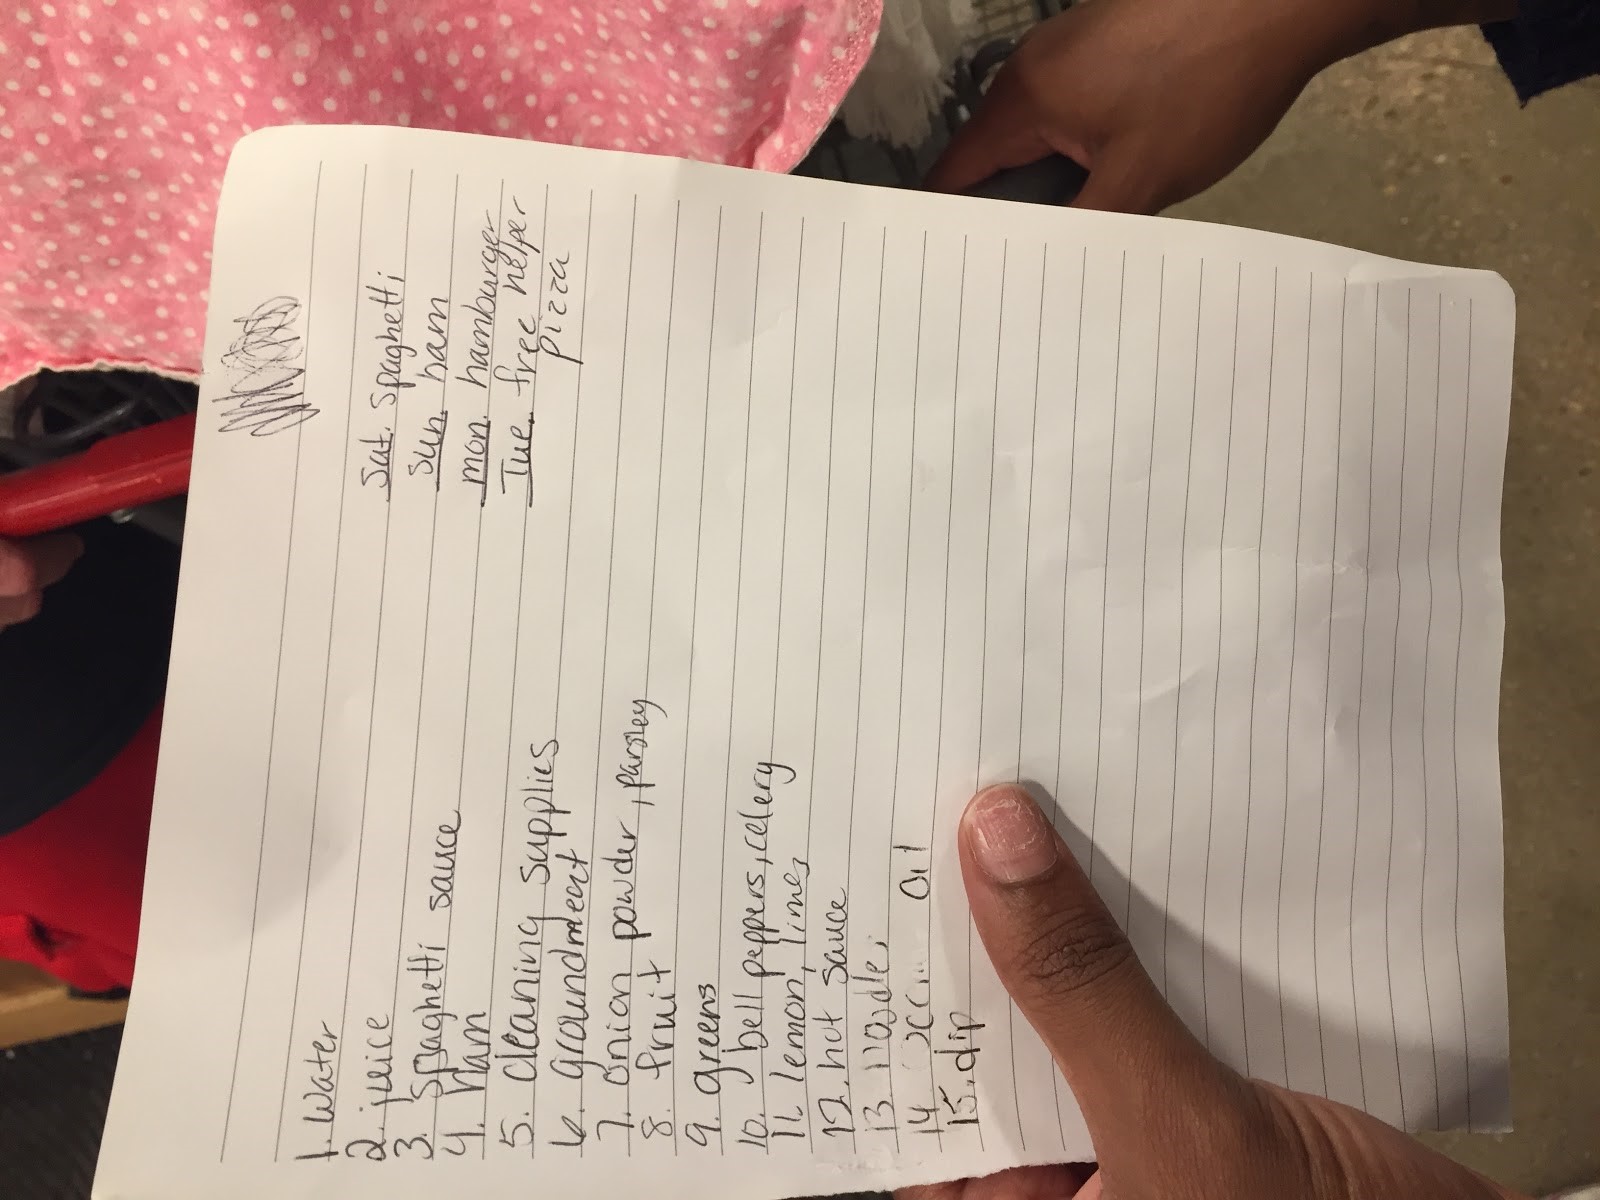 1. Water
2. juice
3. spaghetti sauce
4. ham
5. cleaning supplies
6. groundmeat
7. onion powder, parsley
8. fruit
9. greens
10. bell peppers, celery
11. lemon, limes
12. hot sauce
13 noodles
14 Oil
15. dip
Sat. spaghetti
Sun. ham
mon. hamburger
helper
Tue. free
pizza